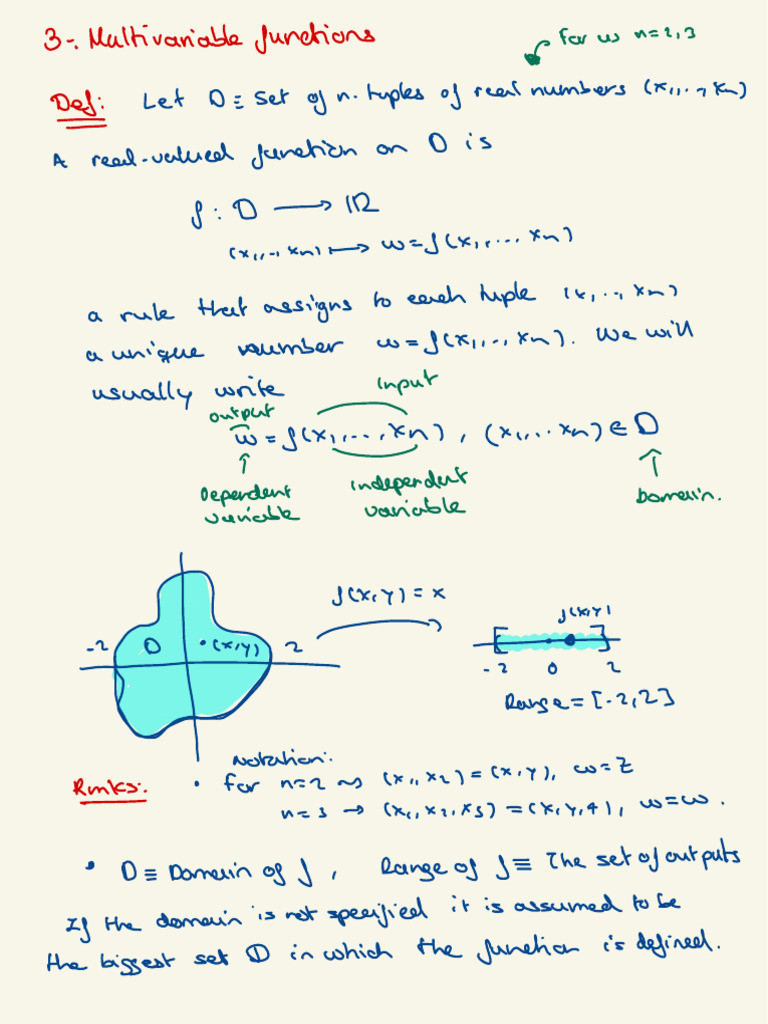 3-. Multivariable functions
for us n=2,3
Def: Let D ≡ set of n-tuples of real numbers (x₁,..,xₙ)
A real-valued function on D is
f : D ⟶ ℝ
(x₁,..,xₙ) ⟼ w=f(x₁,...xₙ)
a rule that assigns to each tuple (x₁,..,xₙ)
a unique number w=f(x₁,..,xₙ). We will
usually write
input
output
w=f(x₁,...,xₙ), (x₁,..xₙ)∈D
↑
↑
Dependent variable
independent variable
Domain.
f(x,y)=x
f(x,y)
-2 D •(x,y) 2
-2 0 2
Range=[-2,2]
Notation:
Rmks: • for n=2 ⇝ (x₁,x₂)=(x,y), w=z
n=3 → (x₁,x₂,x₃)=(x,y,z), w=w.
• D≡Domain of f, Range of f≡ The set of outputs
If the domain is not specified it is assumed to be
the biggest set D in which the function is defined.